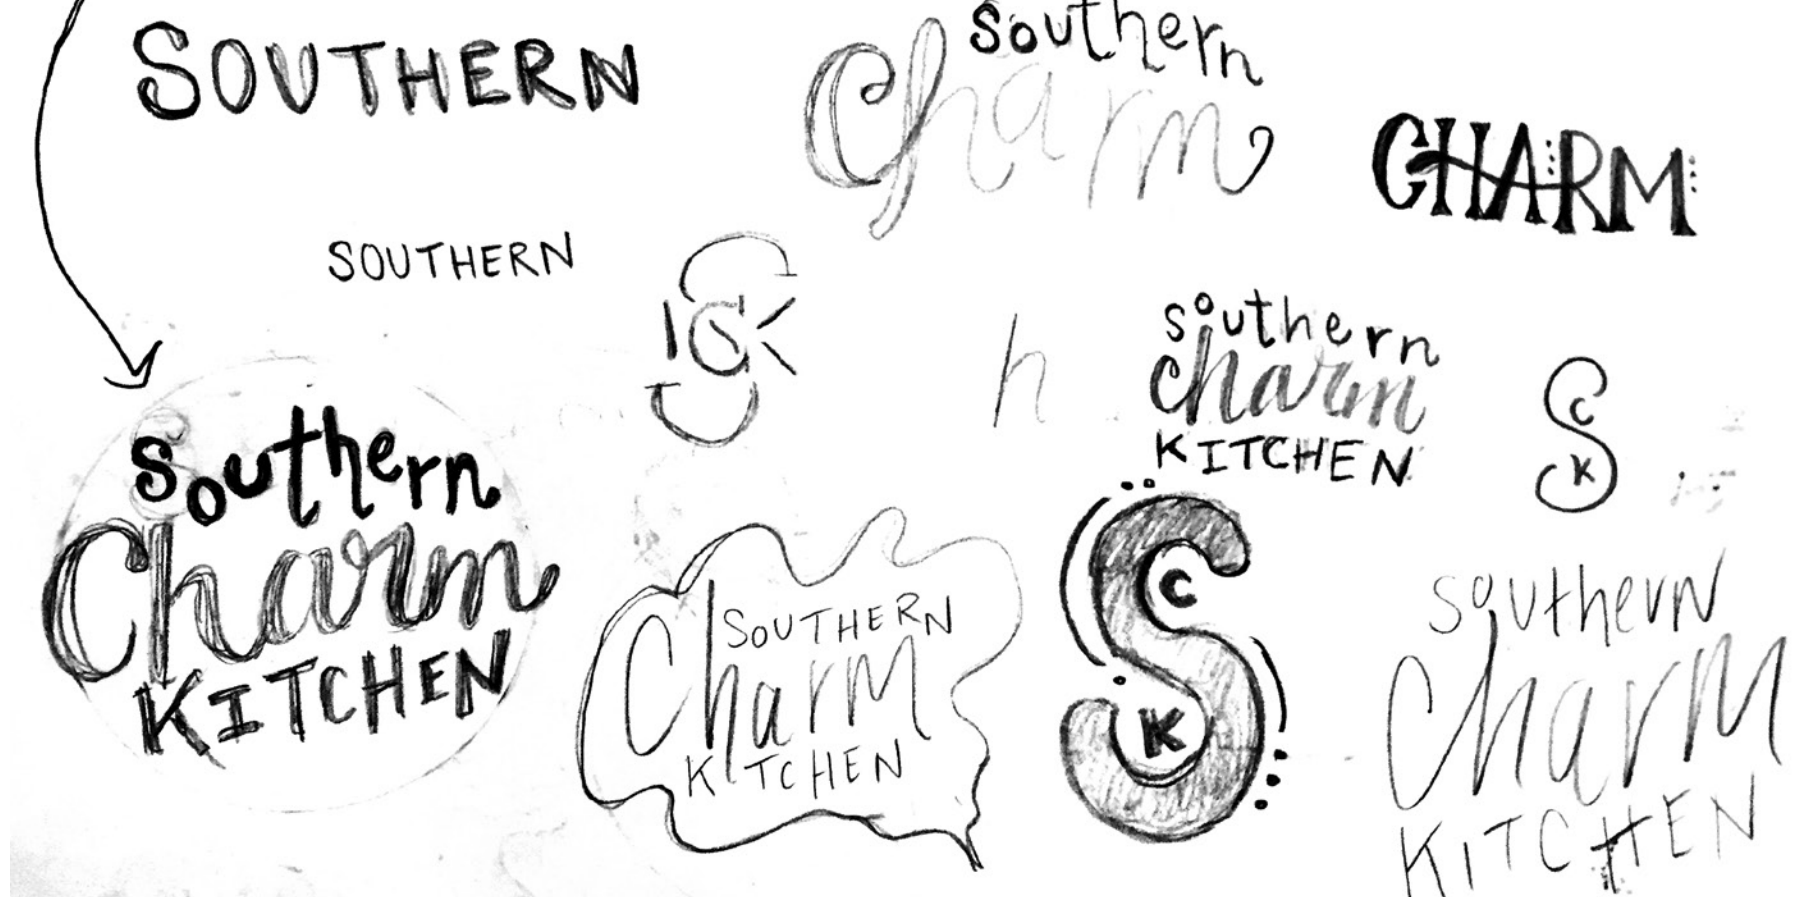 SOUTHERN
southern
Charm
CHARM
SOUTHERN
S
C
K
h
southern
charm
KITCHEN
S
C
K
southern
Charm
KITCHEN
SOUTHERN
Charm
KITCHEN
S
C
K
southern
Charm
KITCHEN